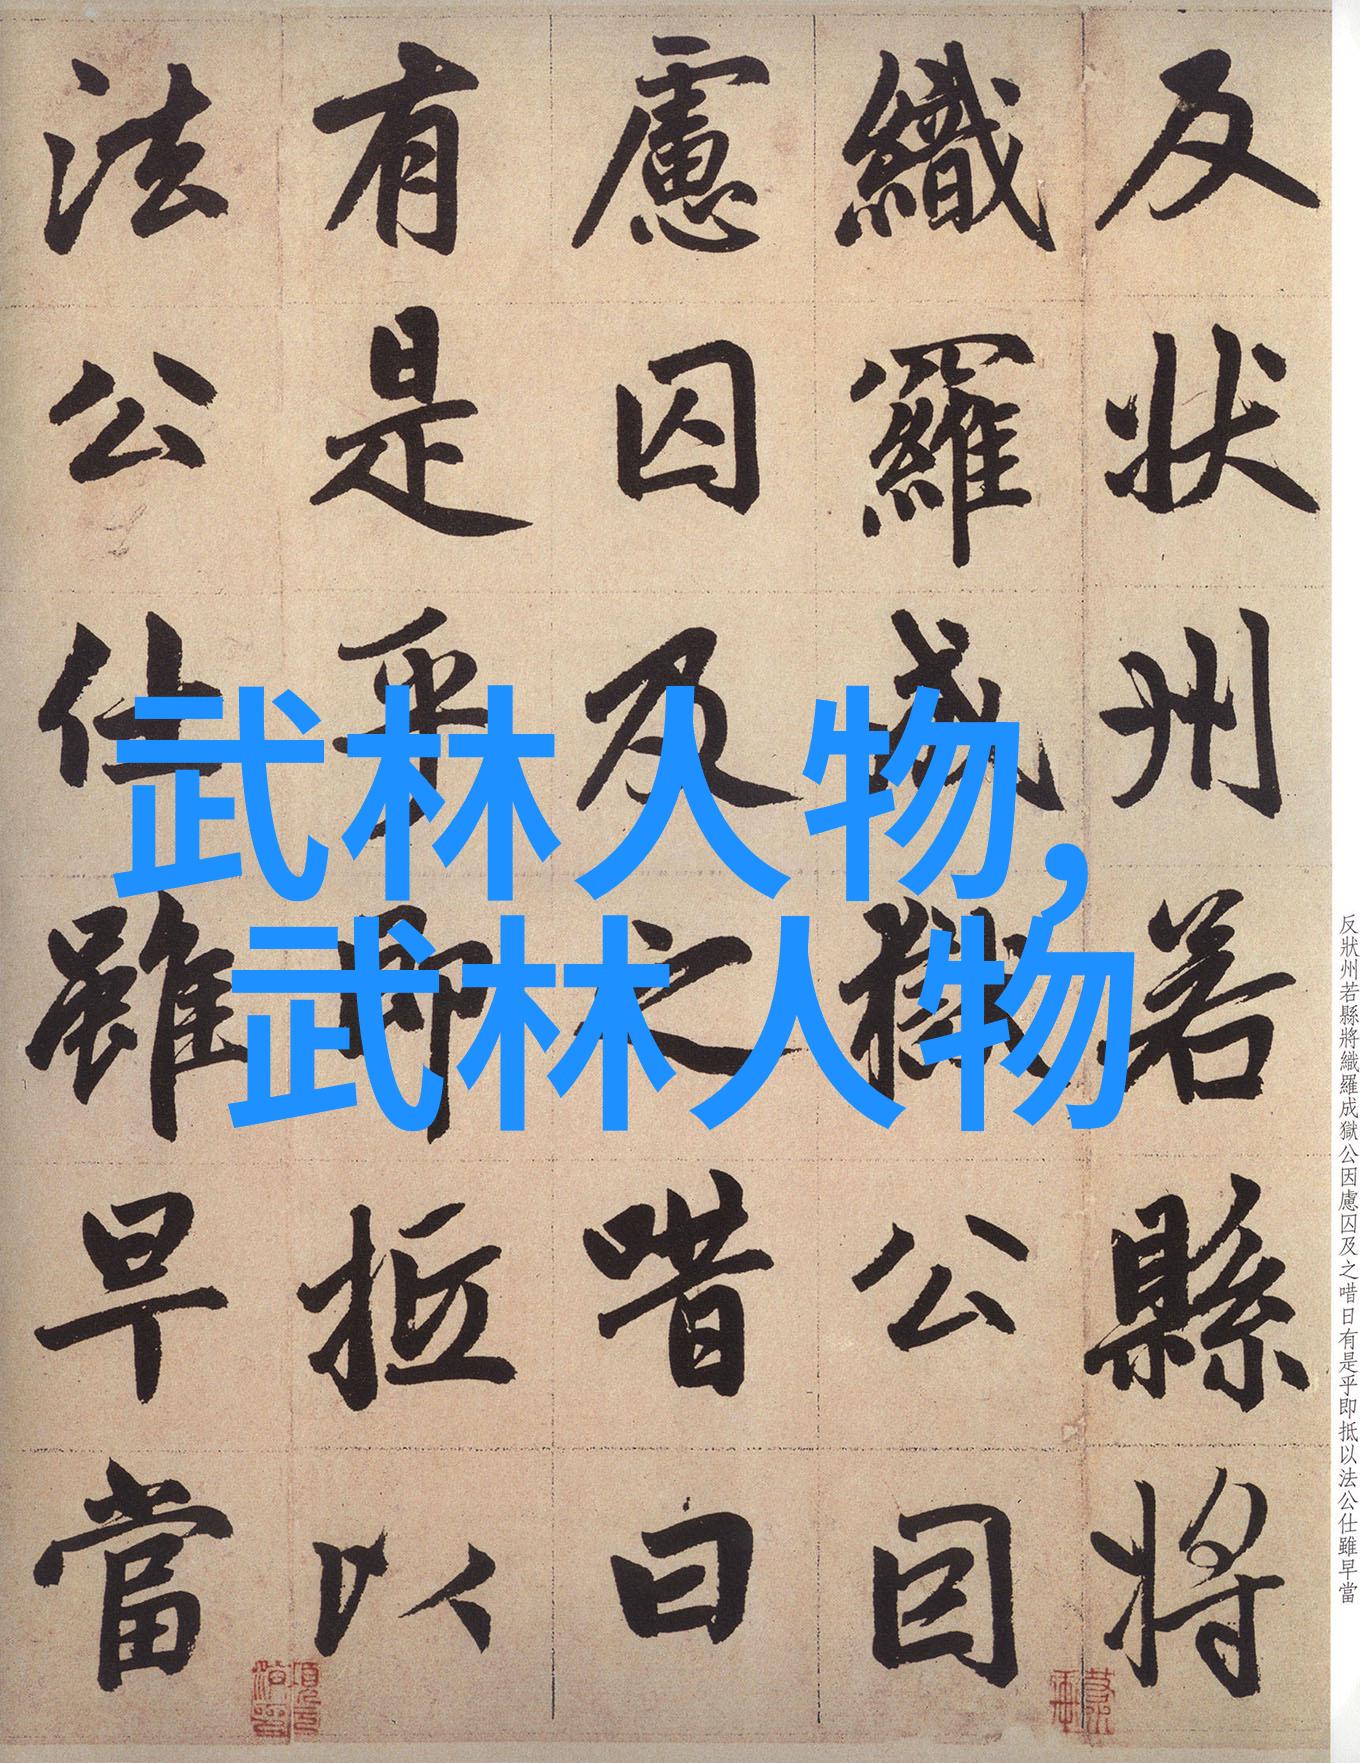 反狀州若縣將
織羅成獄公因
慮囚及之唶曰
有是乎即抵以
法公仕雖早當
武林人物，
武林人物
反狀州若縣將織羅成獄公因慮囚及之唶日有是乎即抵以法公仕雖早當